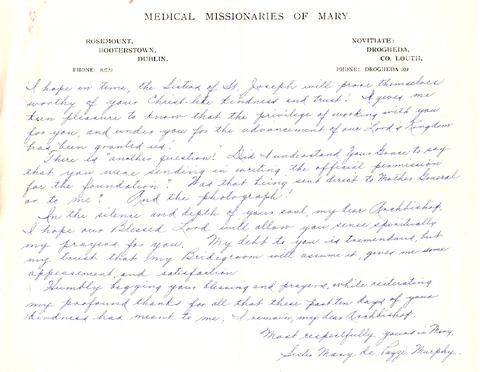 MEDICAL MISSIONARIES OF MARY.
ROSEMOUNT,
BOOTERSTOWN,
DUBLIN.
PHONE:
NOVITIATE:
DROGHEDA,
CO. LOUTH.
PHONE: DROGHEDA
I hope in time, the Sisters of St. Joseph will prove themselves
worthy of your Christ-like kindness and trust! It gives me
keen pleasure to know that the privilege of working with you
for you, and under you for the advancement of our Lord's Kingdom
has been granted us!
There is "another question!" Did I understand Your Grace to say
that you were sending in writing the official permission
for the foundation? Was that being sent direct to Mother General
or to me? And the photograph!
In the silence and depth of your soul, my dear Archbishop,
I hope our Blessed Lord will allow you sense spiritually
my prayers for you. My debt to you is tremendous, but
my trust that my Bridegroom will assume it, gives me some
appeasement, and satisfaction
Humbly begging your blessing and prayers, while reiterating
my profound thanks for all that these past ten days of your
kindness has meant to me, I remain, my dear Archbishop,
Most respectfully, yours in Mary,
Sister Mary de Pazzi Murphy.